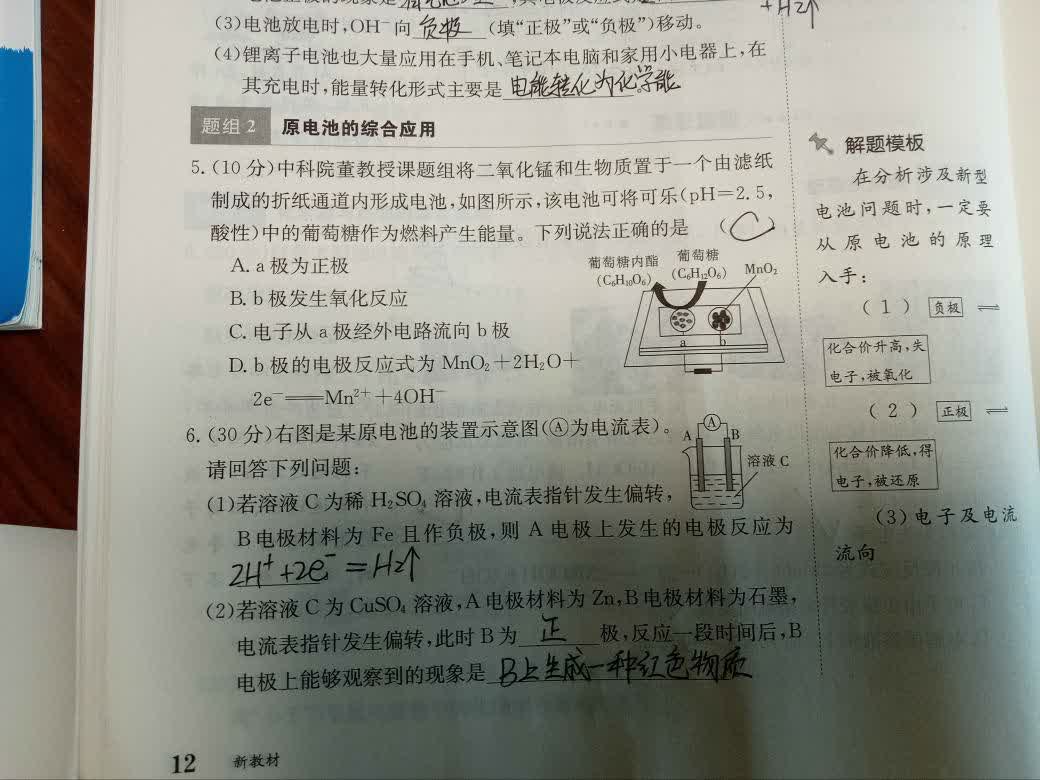 +H₂↑
(3)电池放电时,OH⁻向 负极 (填“正极”或“负极”)移动。
(4)锂离子电池也大量应用在手机、笔记本电脑和家用小电器上,在
其充电时,能量转化形式主要是 电能转化为化学能
题组2 原电池的综合应用
5.(10分)中科院董教授课题组将二氧化锰和生物质置于一个由滤纸
制成的折纸通道内形成电池,如图所示,该电池可将可乐(pH=2.5,
酸性)中的葡萄糖作为燃料产生能量。下列说法正确的是 (C)
A. a极为正极
B. b极发生氧化反应
C. 电子从a极经外电路流向b极
D. b极的电极反应式为 MnO₂+2H₂O+
2e⁻══Mn²⁺+4OH⁻
葡萄糖内酯
(C₆H₁₀O₆)
葡萄糖
(C₆H₁₂O₆)
MnO₂
a b
6.(30分)右图是某原电池的装置示意图(Ⓐ为电流表)。
请回答下列问题:
(1)若溶液C为稀H₂SO₄溶液,电流表指针发生偏转,
B电极材料为Fe且作负极,则A电极上发生的电极反应为
2H⁺+2e⁻=H₂↑
(2)若溶液C为CuSO₄溶液,A电极材料为Zn,B电极材料为石墨,
电流表指针发生偏转,此时B为 正 极,反应一段时间后,B
电极上能够观察到的现象是 B上生成一种红色物质
A
A B
溶液C
解题模板
在分析涉及新型
电池问题时,一定要
从原电池的原理
入手:
(1) 负极 ⇌
化合价升高,失
电子,被氧化
(2) 正极 ⇌
化合价降低,得
电子,被还原
(3)电子及电流
流向
12 新教材